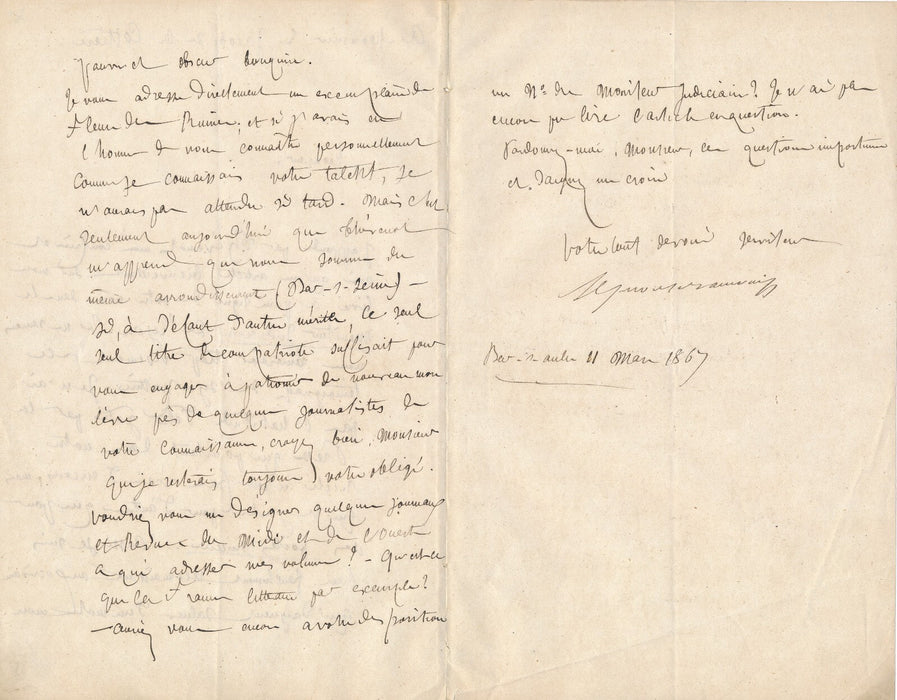 pauvre et obscur bouquin.
Je vous adresse directement un exemplaire de
Fleurs des Ruines, et si j'avais eu
l'honneur de vous connaître personnellement
comme je connaissais votre talent, je
n'aurais pas attendu si tard. Mais c'est
seulement aujourd'hui que Thévenot
m'apprend que nous sommes du
même arrondissement (Bar-s-Seine) —
si, à défaut d'autre mérite, ce seul
seul titre de compatriote suffisait pour
vous engager à patronner de nouveau mon
livre près de quelques journalistes de
votre connaissance, croyez bien, Monsieur
que je resterais toujours votre obligé.
voudriez vous me désigner quelques journaux
et Revues du Midi et de l'Ouest
à qui adresser mes volumes ? — Qu'est-ce
que la littéraire par exemple ?
— auriez vous encore à votre disposition
un N° du Moniteur Judiciaire ? Je n'ai pas
encore pu lire l'article en question.
Pardonnez-moi, Monsieur, ces questions importunes
et daignez me croire
Votre tout dévoué serviteur
Bar-s-aube 11 Mars 1867